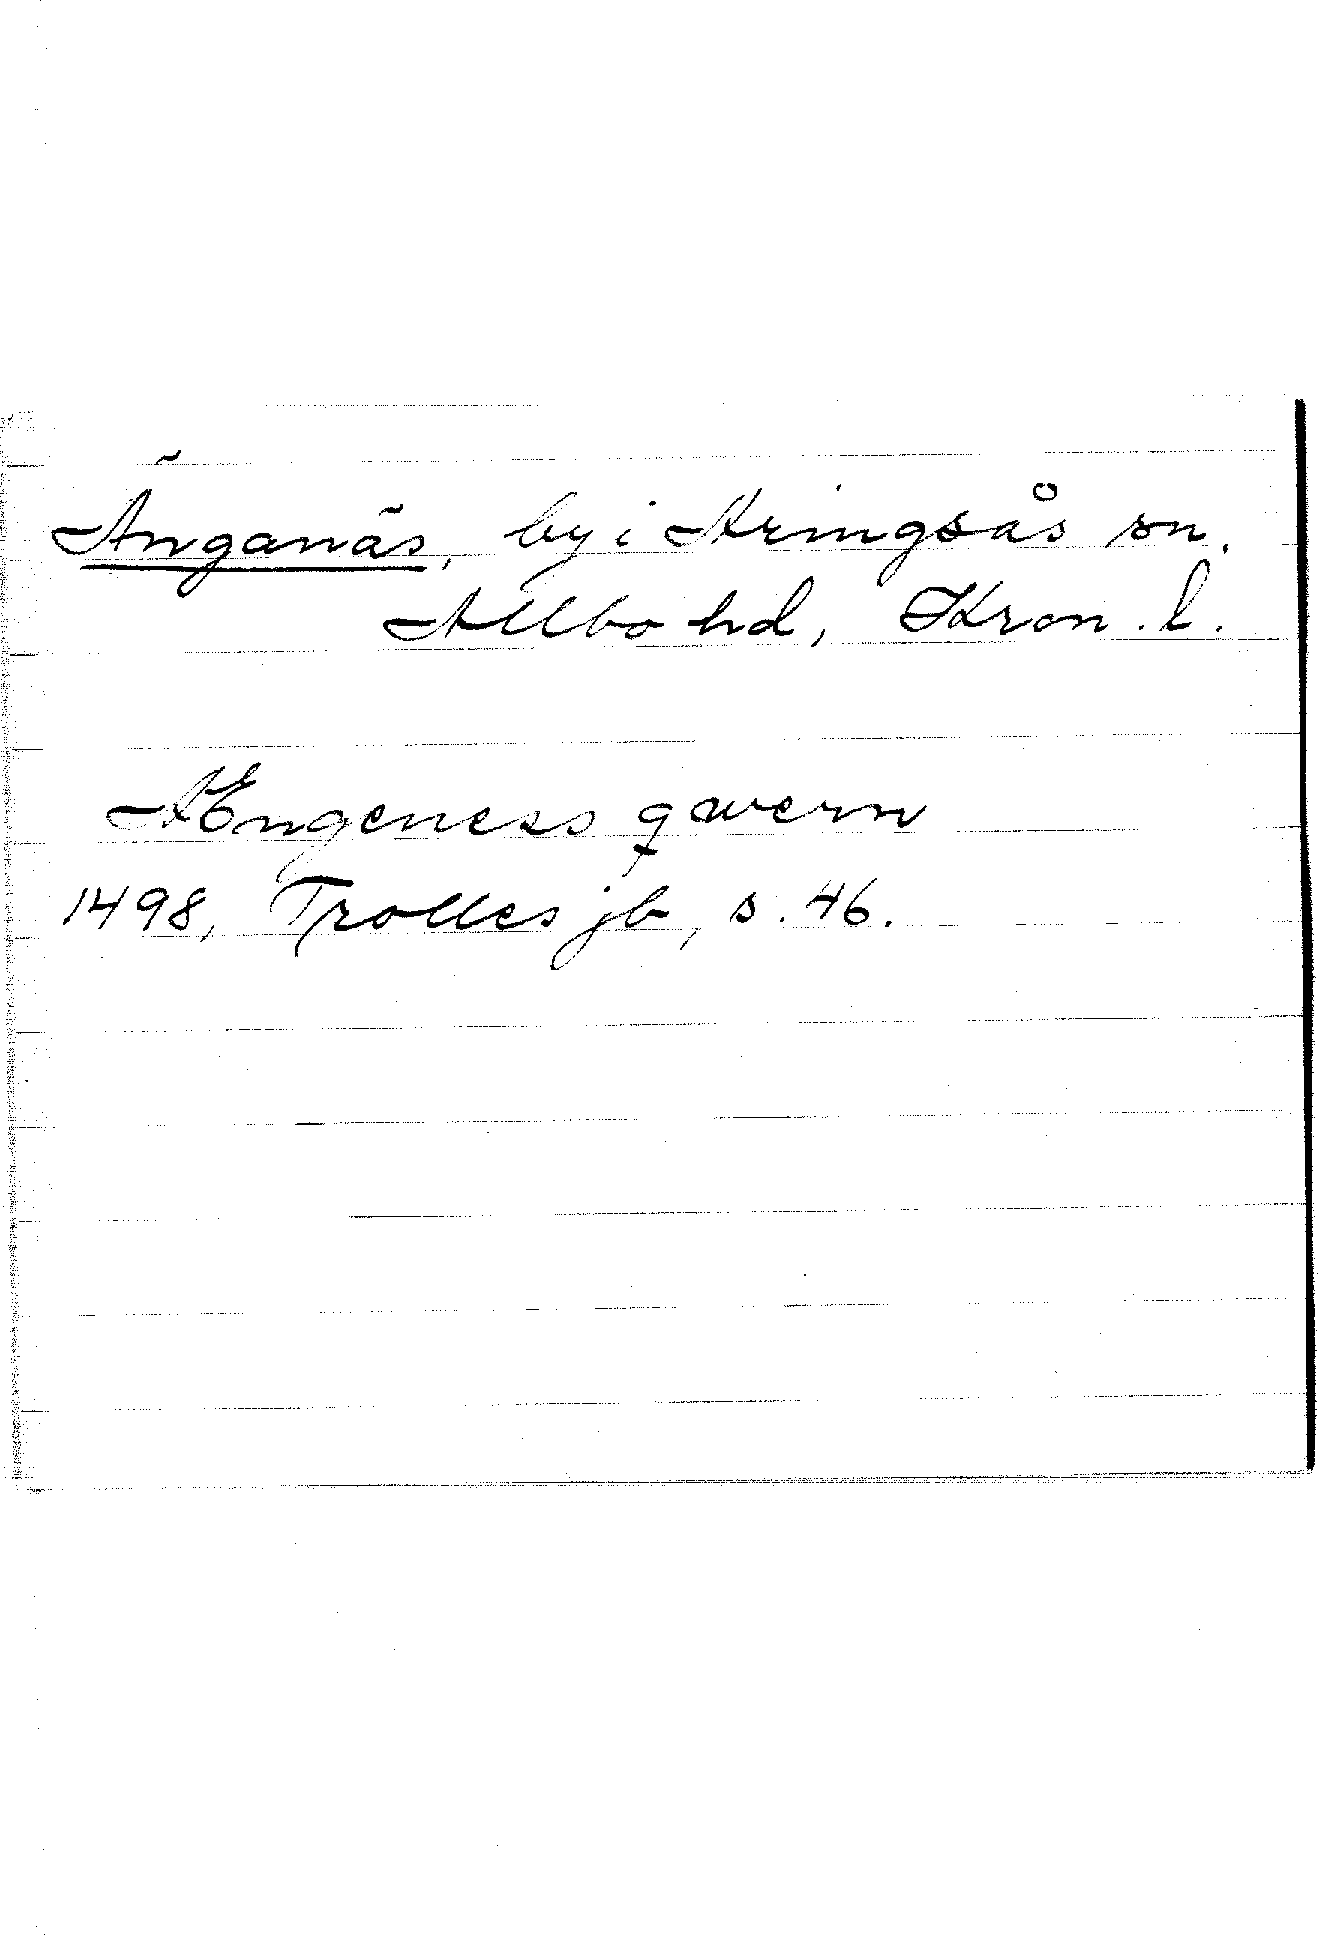 Änganäs, by i Aringsås sn.
Allbo hd, Kron. l.
Ængeness qwern
1498, Trolles jb, s. 46.